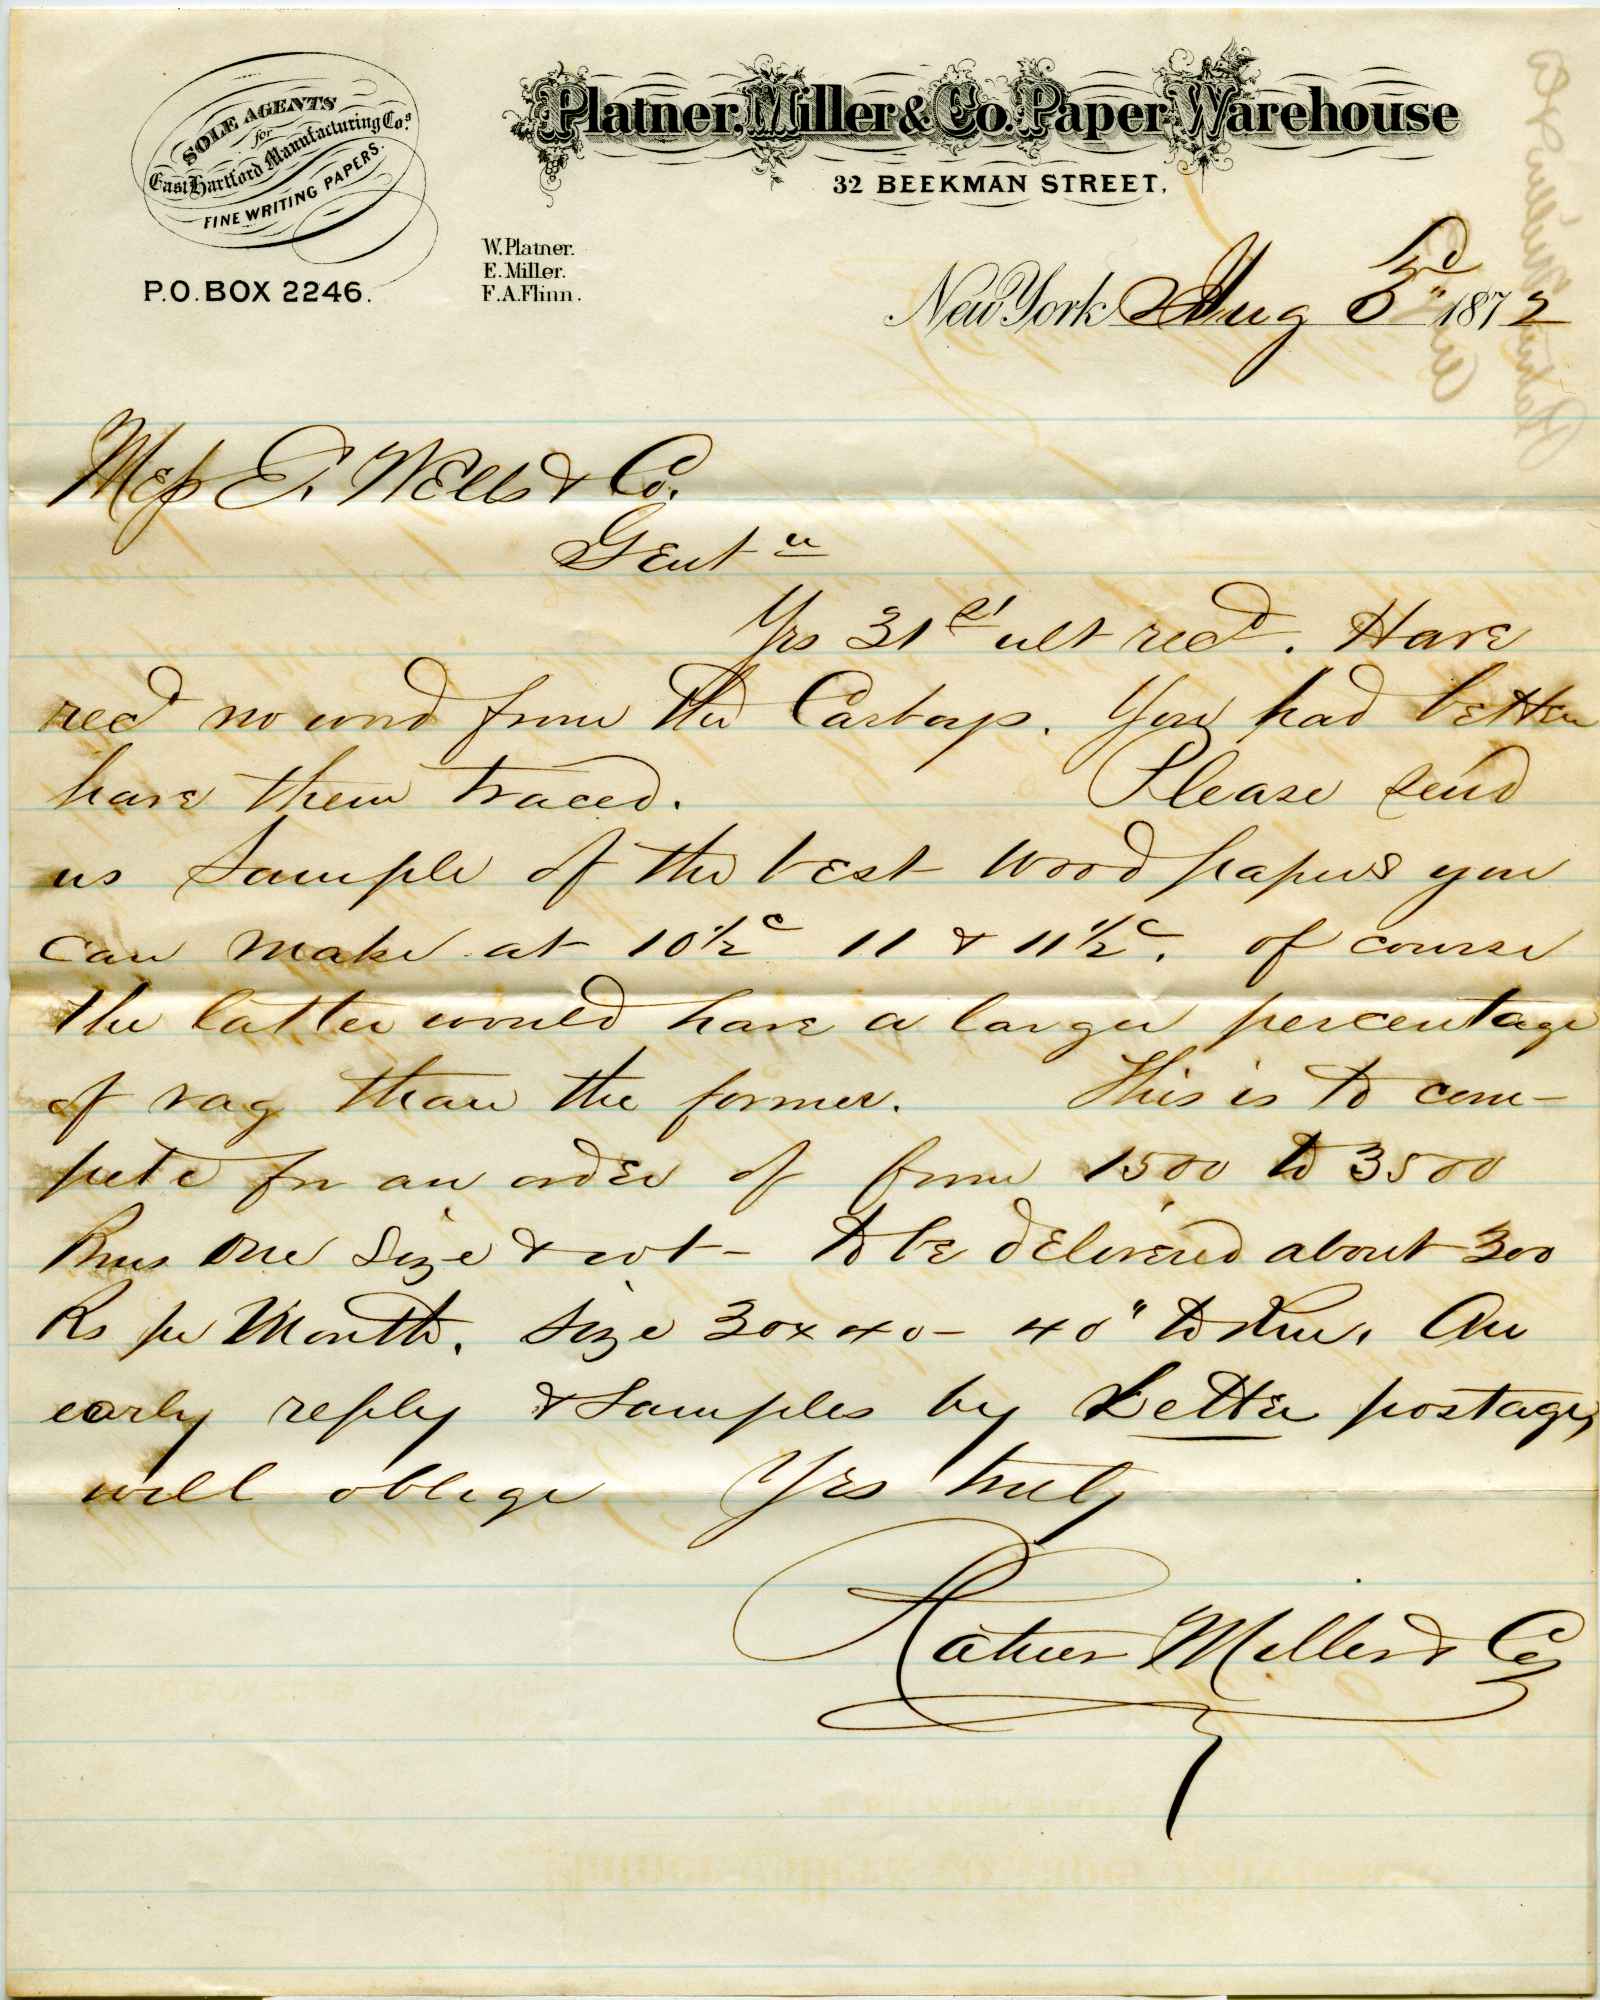 SOLE AGENTS
for
East Hartford Manufacturing Co.s
FINE WRITING PAPERS.
P.O. BOX 2246.
Platner, Miller & Co. Paper Warehouse
32 BEEKMAN STREET,
W. Platner.
E. Miller.
F. A. Flinn.
New York Aug 1872
Mess E. Wells & Co.
Gent n
Yrs 31st ult recd. Have
recd no word from the Carboys. You had better
have them traced. Please send
us Sample of the best wood papers you
can make at 10½c 11 & 11½c. of course
the latter would have a larger percentage
of rag than the former. This is to com-
pete for an order of from 1500 to 3500
Rms one size & wt - to be delivered about 300
Rs per Month. size 30x40 - 40" to Rm. An
early reply & samples by Letter postage,
will oblige Yrs truly
Platner Miller & Co